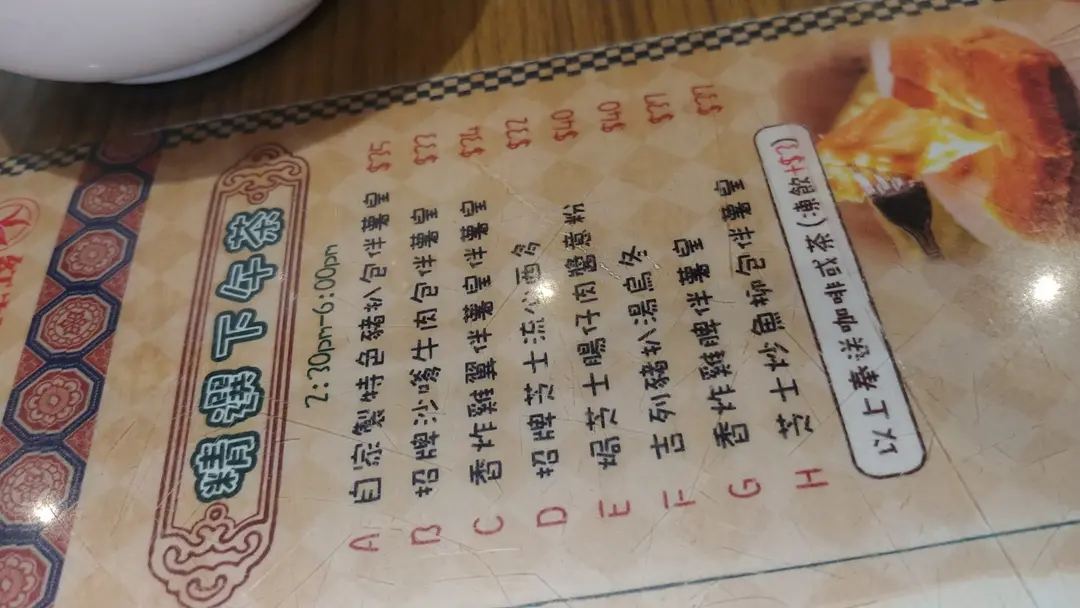 精選下午茶
2:30pm-6:00pm
A 自家製特色豬扒包伴薯皇 $35
B 招牌沙嗲牛肉包伴薯皇 $33
C 香炸雞翼伴薯皇伴薯皇 $34
D 招牌芝士流心西多 $32
E 焗芝士腸仔肉醬意粉 $40
F 吉列豬扒湯烏冬 $40
G 香炸雞髀伴薯皇 $37
H 芝士炸魚柳包伴薯皇 $37
以上奉送咖啡或茶(凍飲+$3)